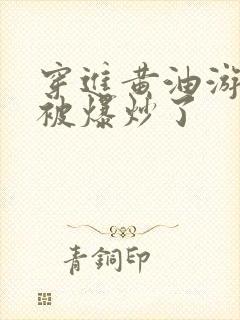 穿進黃油游
被爆炒了
青銅印